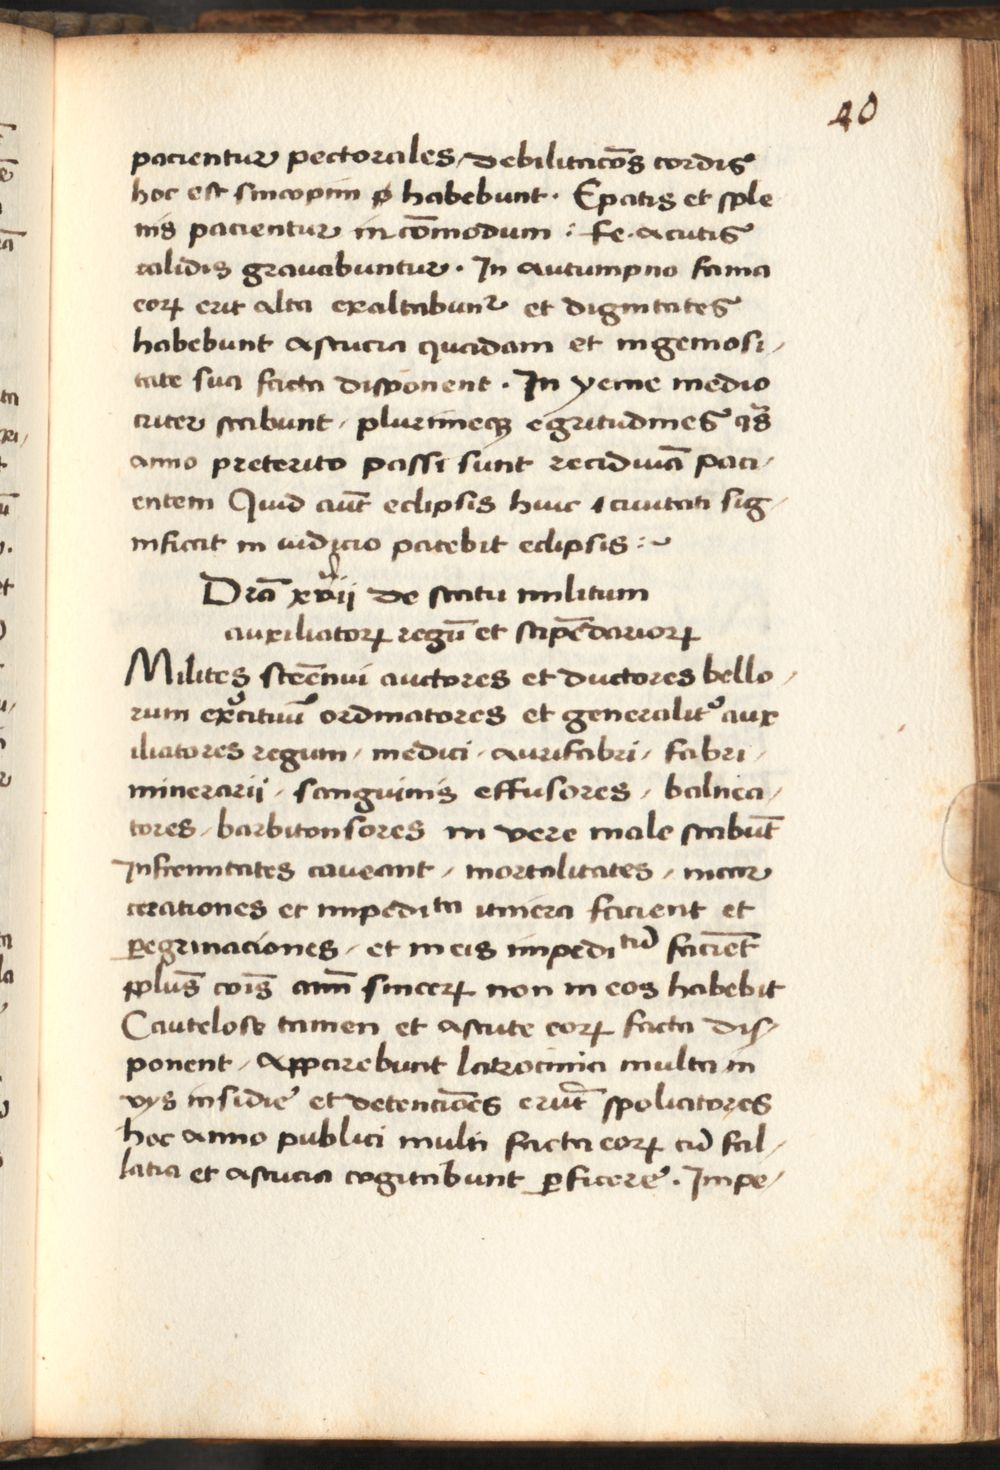 40
pacientur pectorales, debilitacōēs cordis
hoc est sincopim habebunt. Epatis et sple
nis pacientur incōmodum : fe. acutis
calidis gravabuntur. In autumpno fama
eorꝝ erit alta exaltabunt᷑ et dignitates
habebunt astucia quadam et ingeniosi,
tate sua facta disponent. In yeme medio
criter stabunt, plurimeqꝫ egritudines qͣs
anno preterito passi sunt recidiuā paci,
entem Quid aūt eclipsis huic civitati sig,
nificat in iudicio patebit eclipsis :~
Dr̄ā xvii de statu militum
auxiliatorꝝ regū et stipēdariorꝝ
Milites strēnui auctores et ductores bello,
rum ex̓cituū ordinatores et generalit᷑ aux
iliatores regum, medici, aurifabri, fabri,
minerarii, sanguinis effusores, balnea,
tores, barbitonsores in vere male stabūt
Infirmitates caveant, mortalitates, incar
cerationes et impedita itinera facient et
ꝑegrinaciones, et in eis impeditū faciēt
pplus̄ cōis̄ aīm sincerꝝ non in eos habebit
Cautelose tamen et astute eorꝝ facta dis,
ponent, Apparebunt latrocinia multa in
vys insidie et detencōēs erūt spoliatores
hoc anno publici multi facta eorꝝ cū fal,
latia et astucia cogitabunt ꝑficere. Impe,